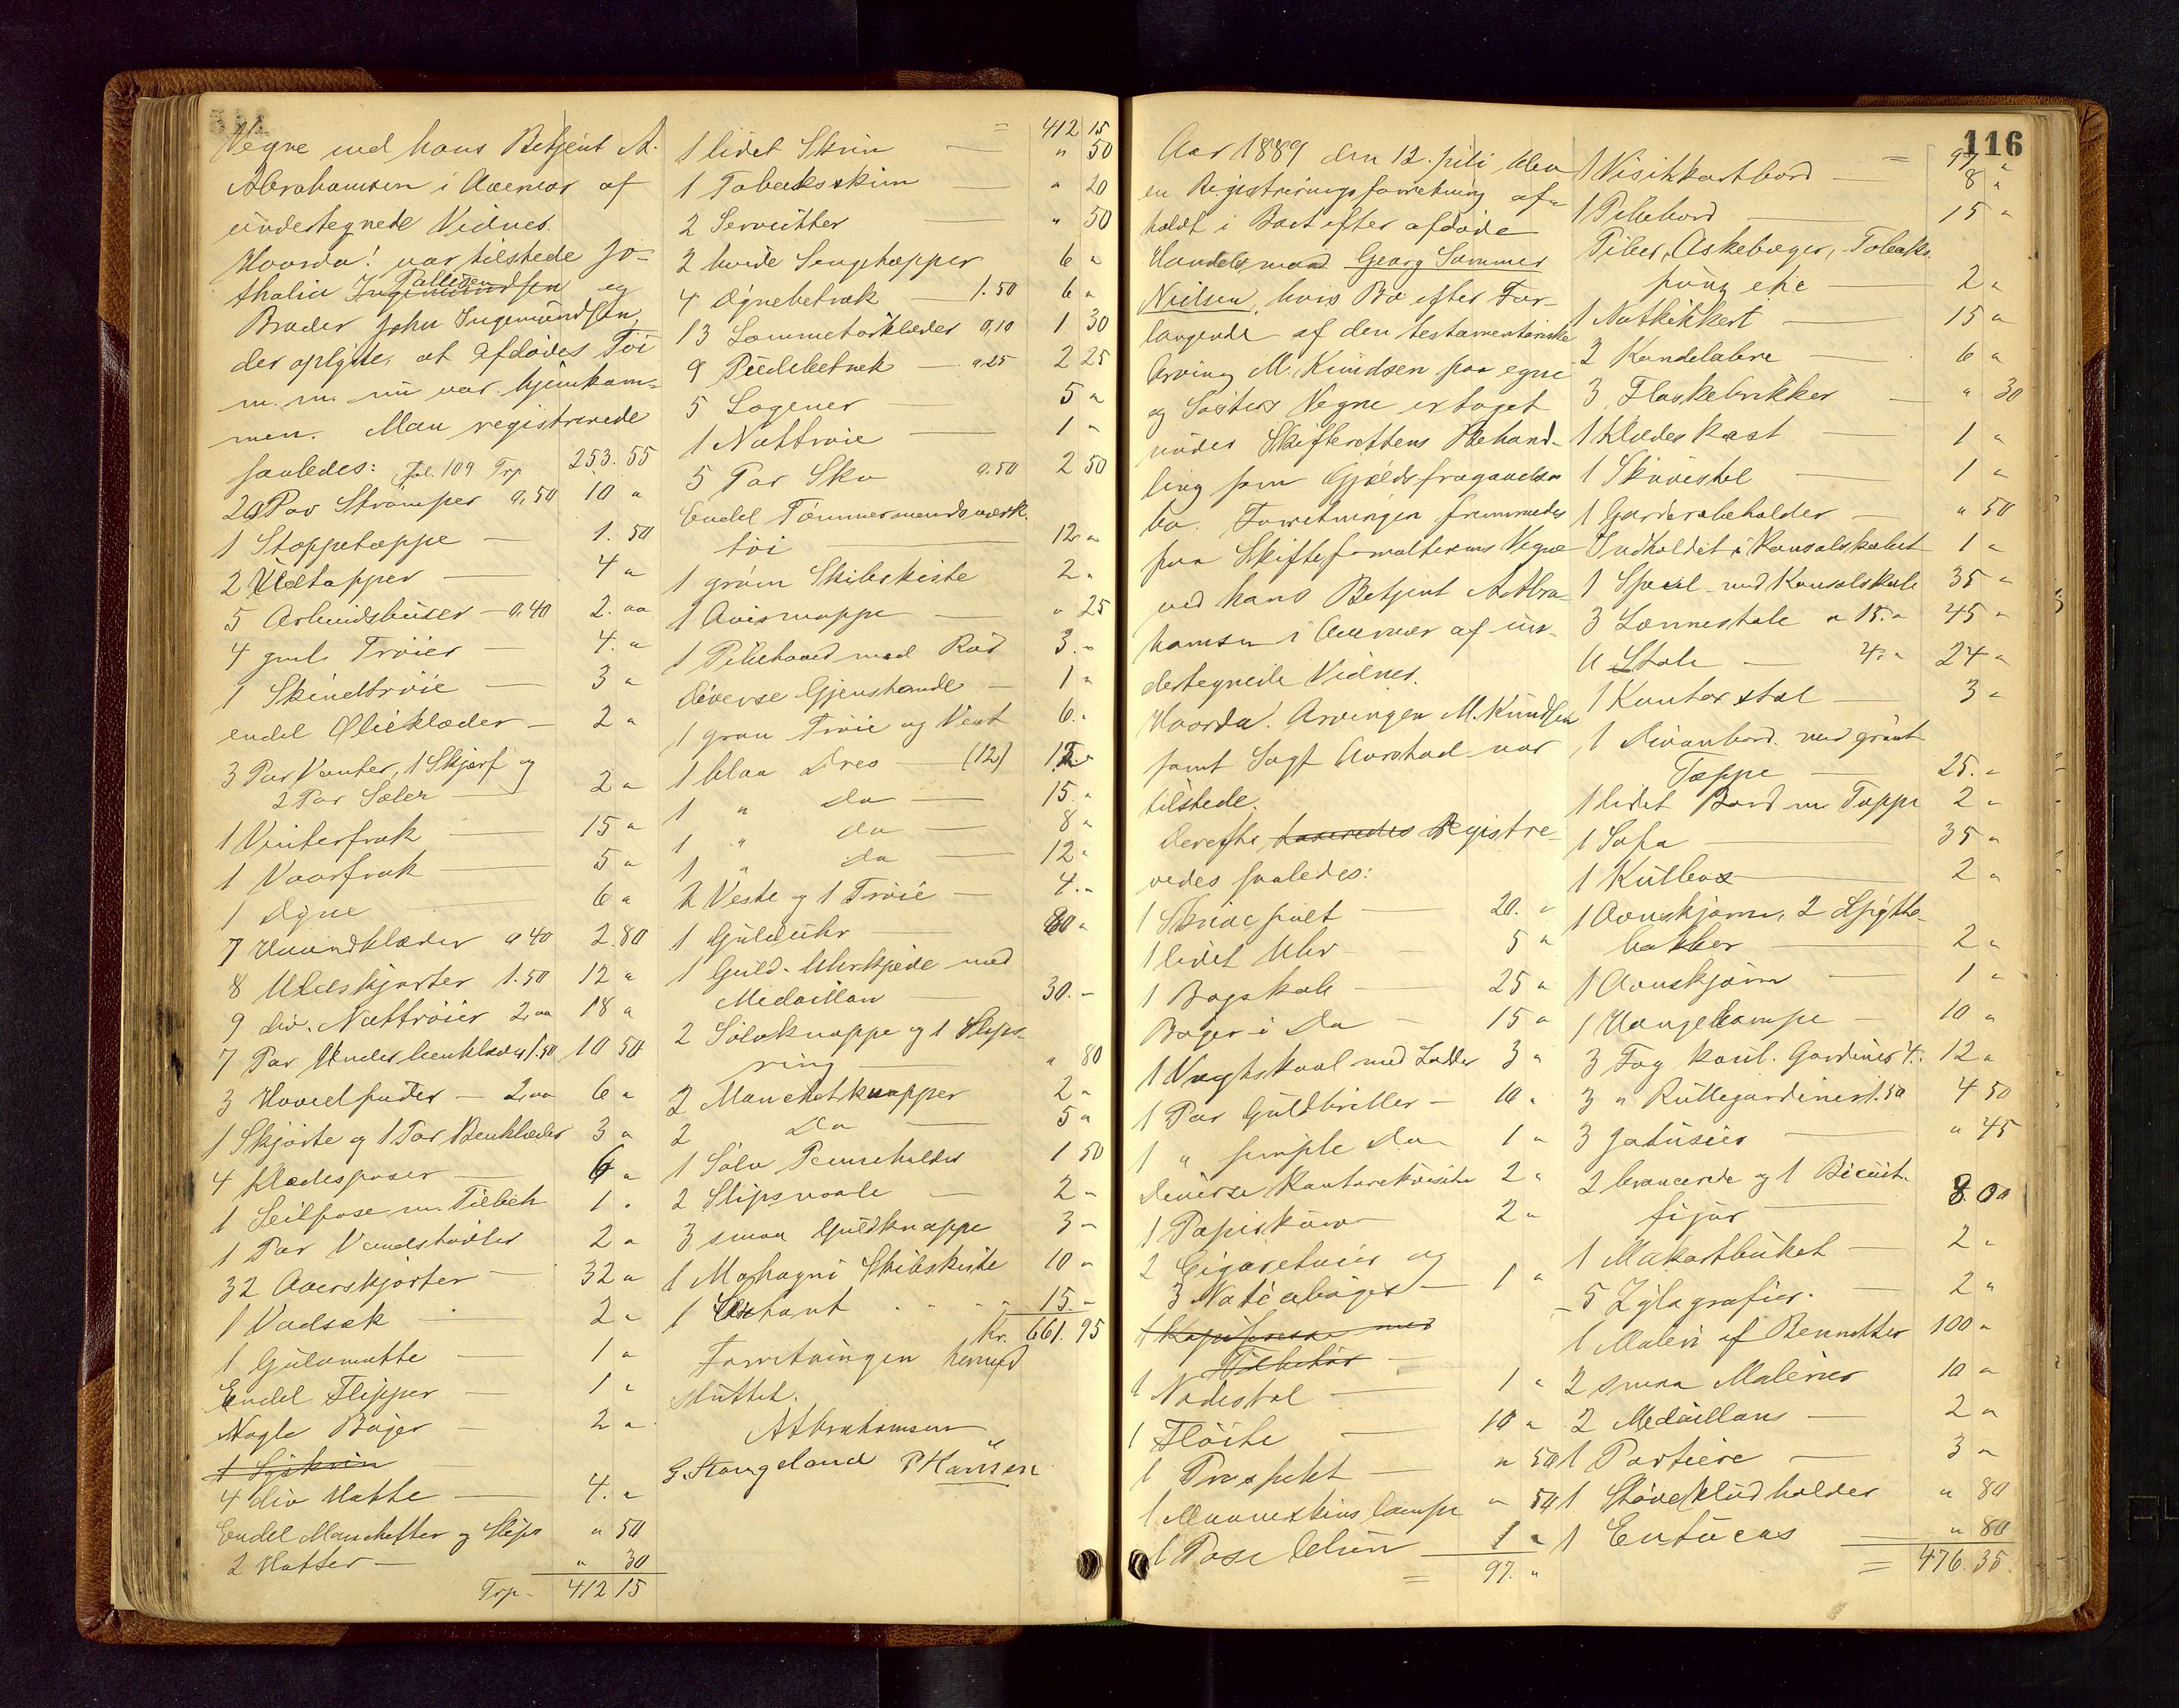 Vegne ved hans Betjent A.
Abrahamsen i Overvær af
undertegnede Vidner.
Hvorda! var tilstede Jo-
thalia Ingemundsen Pallesen og
Broder John Ingemundsen,
der oplyste, at Afdødes Tøi
m. m. nu var hjemkom-
men. Man registrerede
saaledes: Fol. 109 Trp 253.55
20 Par Strømper 0,50 10 "
1 Stoppetæppe — 1.50
2 Uldtæpper — 4 "
5 Arbeidsbuser — 0,40 2.00
4 gml. Trøier — 4. "
1 Skindtrøie — 3 "
endel Olieklæder — 2 "
3 Par Vanter, 1 Skjærf og
2 Par Sæler — 2 "
1 Vinterfrak — 15 "
1 Vaarfrak — 5 "
1 Dyne — 6 "
7 Haandklæder 0 40 2.80
8 Uldskjorter 1.50 12 "
9 div. Nattrøier 2,00 18 "
7 Par Underbenklæder 1.50 10 50
3 Hovedpuder — 2,00 6 "
1 Skjorte og 1 Par Benklæder 3 "
4 Klædesposer — 6 "
1 Seilpose m. Tilbeh 1 "
1 Par Vandstøvler 2 "
32 Overskjorter — 32 "
1 Vadsæk — 2 "
1 Gulvmatte — 1 "
Endel Flipper — 1 "
Nogle Bøger — 2 "
1 Syskrin
4 div Hatte — 4. "
Endel Manchetter og Slips " 50
2 Hatter — " 30
Trp - 412 15
= 412 15
1 lidet Skrin — " 50
1 Tobaksskrin — " 20
2 Servietter — " 50
2 hvide Sengetæpper 6 "
4 Dynebetræk — 1.50 6 "
13 Lommetørklæder 0,10 1 30
9 Pudebetræk — 0.25 2 25
5 Lagener — 5 "
1 Nattrøie — 1 "
5 Par Sko 0.50 2 50
Endel Tømmermandsværk-
tøi — 12 "
1 grøn Skibskiste 2 "
1 Avismappe — " 25
1 Pibehoved med Rør 3. "
diverse Gjenstande — 1 "
1 graa Trøie og Vest 6. "
1 blaa Dres — (12) 12. "
1 " Do — 15. "
1 " do — 8 "
1 " do — 12 "
2 Veste og 1 Trøie — 4. "
1 Gulduhr — 80 "
1 Guld-Uhrkjede med
Medaillon 30. "
2 Sølvknappe og 1 Slips-
ring — " 80
2 Manchetknapper 2 "
2 Do — 5 "
1 Sølv Penneholder 1 50
2 Slipsnaale — 2 "
3 smaa Guldknappe 3 "
1 Mahogni Skibskiste 10 "
1 Sextant . . . . 15. "
Kr. 661.95
Forretningen hermed
sluttet.
A Abrahamsen
G. Stangeland P Hansen
116
Aar 1889 den 12. Juli blev
en Registreringsforretning af-
holdt i Boet efter afdøde
Handelsmand Georg Sommer
Nielsen, hvis Bo efter For-
langende af den testamentariske
Arving M. Knudsen paa egne
og Søsters Vegne er taget
under Skifterettens Behand-
ling som Gjældsfragaaelses
bo. Forretningen fremmedes
paa Skifteforvalterens Vegne
ved hans Betjent A. Abra-
hamsen i Overvær af un-
dertegnede Vidner.
Hvorda! Arvingen M. Knudsen
samt Sagf. Aarstad var
tilstede.
Derefter taxeredes Registre-
redes saaledes:
1 Skrivepult — 20. "
1 lidet Uhr — 5 "
1 Bogskab — 25 "
Bøger i Do — 15 "
1 Vægtskaal med Lodder 3 "
1 Par Guldbriller — 10 "
1 " simple Do — 1 "
Diverse Kontorrekvisiter 2 "
1 Papirskurv — 2 "
2 Cigaretuier og
3 Noticebøger — 1 "
1 Kopipresse med
Tilbehør —
1 Nodestol — 1 "
1 Fløite — 10 "
1 Prospekt — " 50
1 Maaneskinslampe " 50
1 Pose Uhun 1 "
= 97. "
= 97 "
1 Visitkortbord — 8 "
1 Pibebord — 15 "
Piber, Askebæger, Tobaks-
pung etc — 2 "
1 Natkikkert — 15 "
2 Kandelabre — 6 "
3 Flaskebrikker — " 30
1 Klædeskost — 1 "
1 Skruestol — 1 "
1 Garderobeholder — " 50
Indholdet i Konsolskabet 1 "
1 Speil med Konsolskab 35 "
3 Lænestole a 15. " 45 "
6 Stole — 4. " 24 "
1 Kontorstol — 3 "
1 Divanbord med grønt
Tæppe — 25. "
1 lidet Bord m Tæppe 2 "
1 Sofa — 35 "
1 Kulbox — 2 "
1 Ovnskjærm, 2 Spytte-
bakker — 2 "
1 Ovnskjærm — 1 "
1 Hængelampe — 10 "
3 Fag koul. Gardiner 4. " 12 "
3 " Rullegardiner 1.50 4 50
3 Jalusier — " 45
2 bronserede og 1 Bicuit-
figur — 8 00
1 Makartbuket — 2 "
5 Xylografier. — 2 "
1 Maleri af Bennetter 100 "
2 smaa Malerier 10 "
2 Medaillons — 2 "
1 Portiere — 3 "
1 Støvekludholder " 80
1 Entucas — " 80
= 476.35